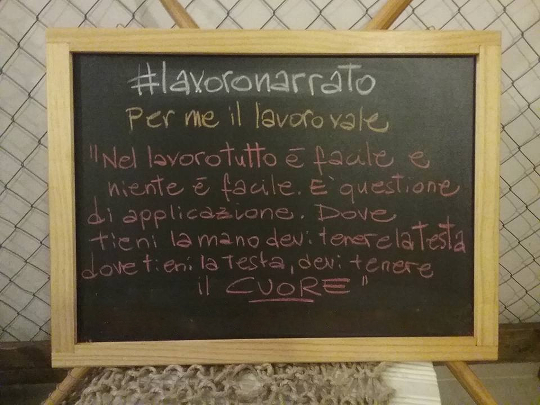 #lavoronarrato
Per me il lavoro vale
"Nel lavoro tutto è facile e
niente è facile. E' questione
di applicazione. Dove
tieni la mano devi tenere la testa
dove tieni la testa, devi tenere
il CUORE"